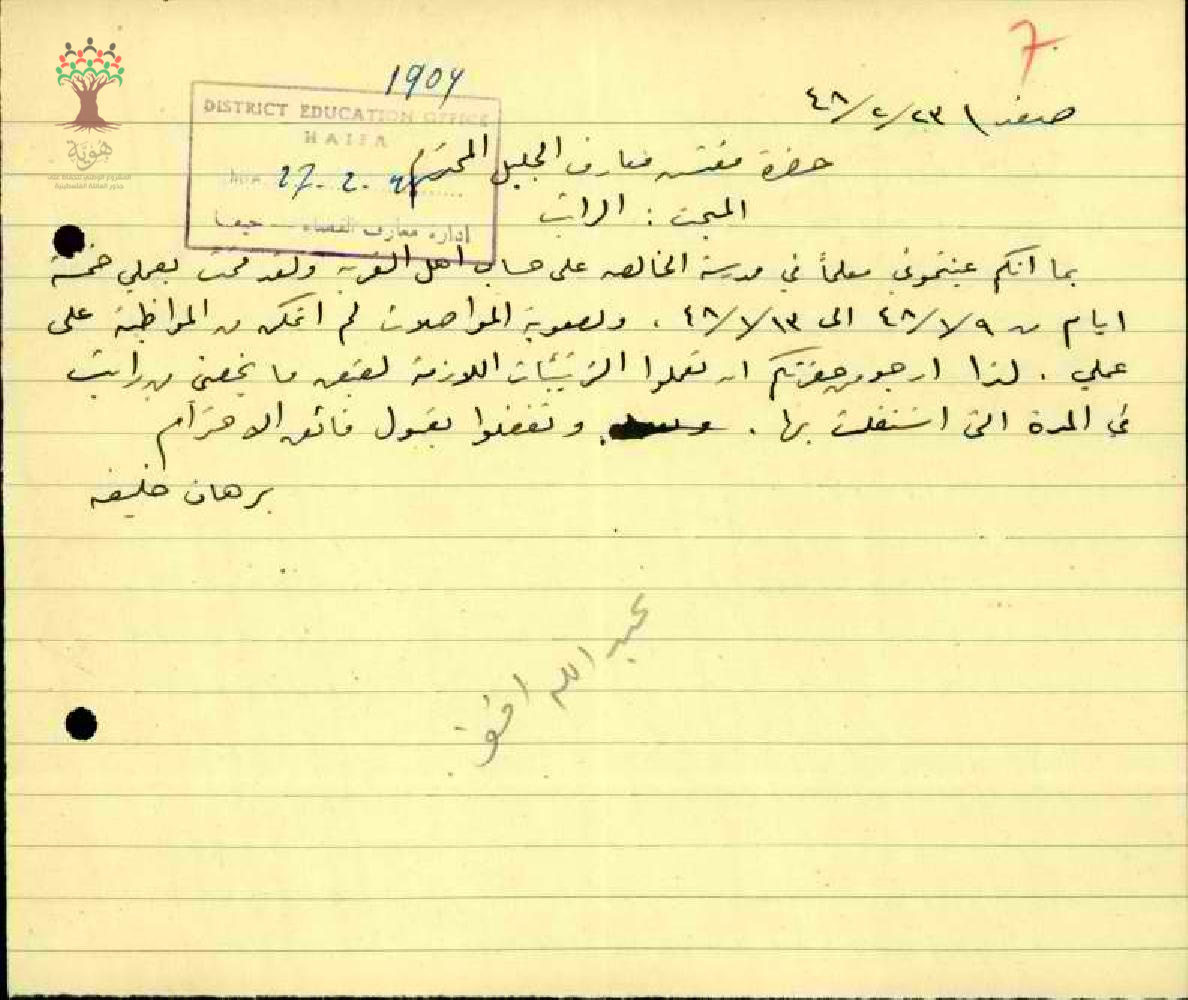 7
1904
صفد ٢٣/٢/٤٨
DISTRICT EDUCATION OFFICE
HAIFA
27. 2. 48
ادارة معارف القضاء - حيفا
هوية
حضرة مفتش معارف الجليل المحترم
المبحث : الراتب
بما انكم عينتموني معلماً في مدرسة الخالصه على حساب اهل القريه ولقد قمت بعملي خمسة
ايام من ٤٨/١/٩ الى ٤٨/١/١٣ . ولصعوبة المواصلات لم اتمكن من المواظبة على
عملي . لذا ارجو من حضرتكم ان تعملوا الترتيبات اللازمة لقبض ما يخصني من راتب
في المدة التي اشتغلت بها . وتفضلوا بقبول فائق الاحترام
برهان خليفه
عبد الله